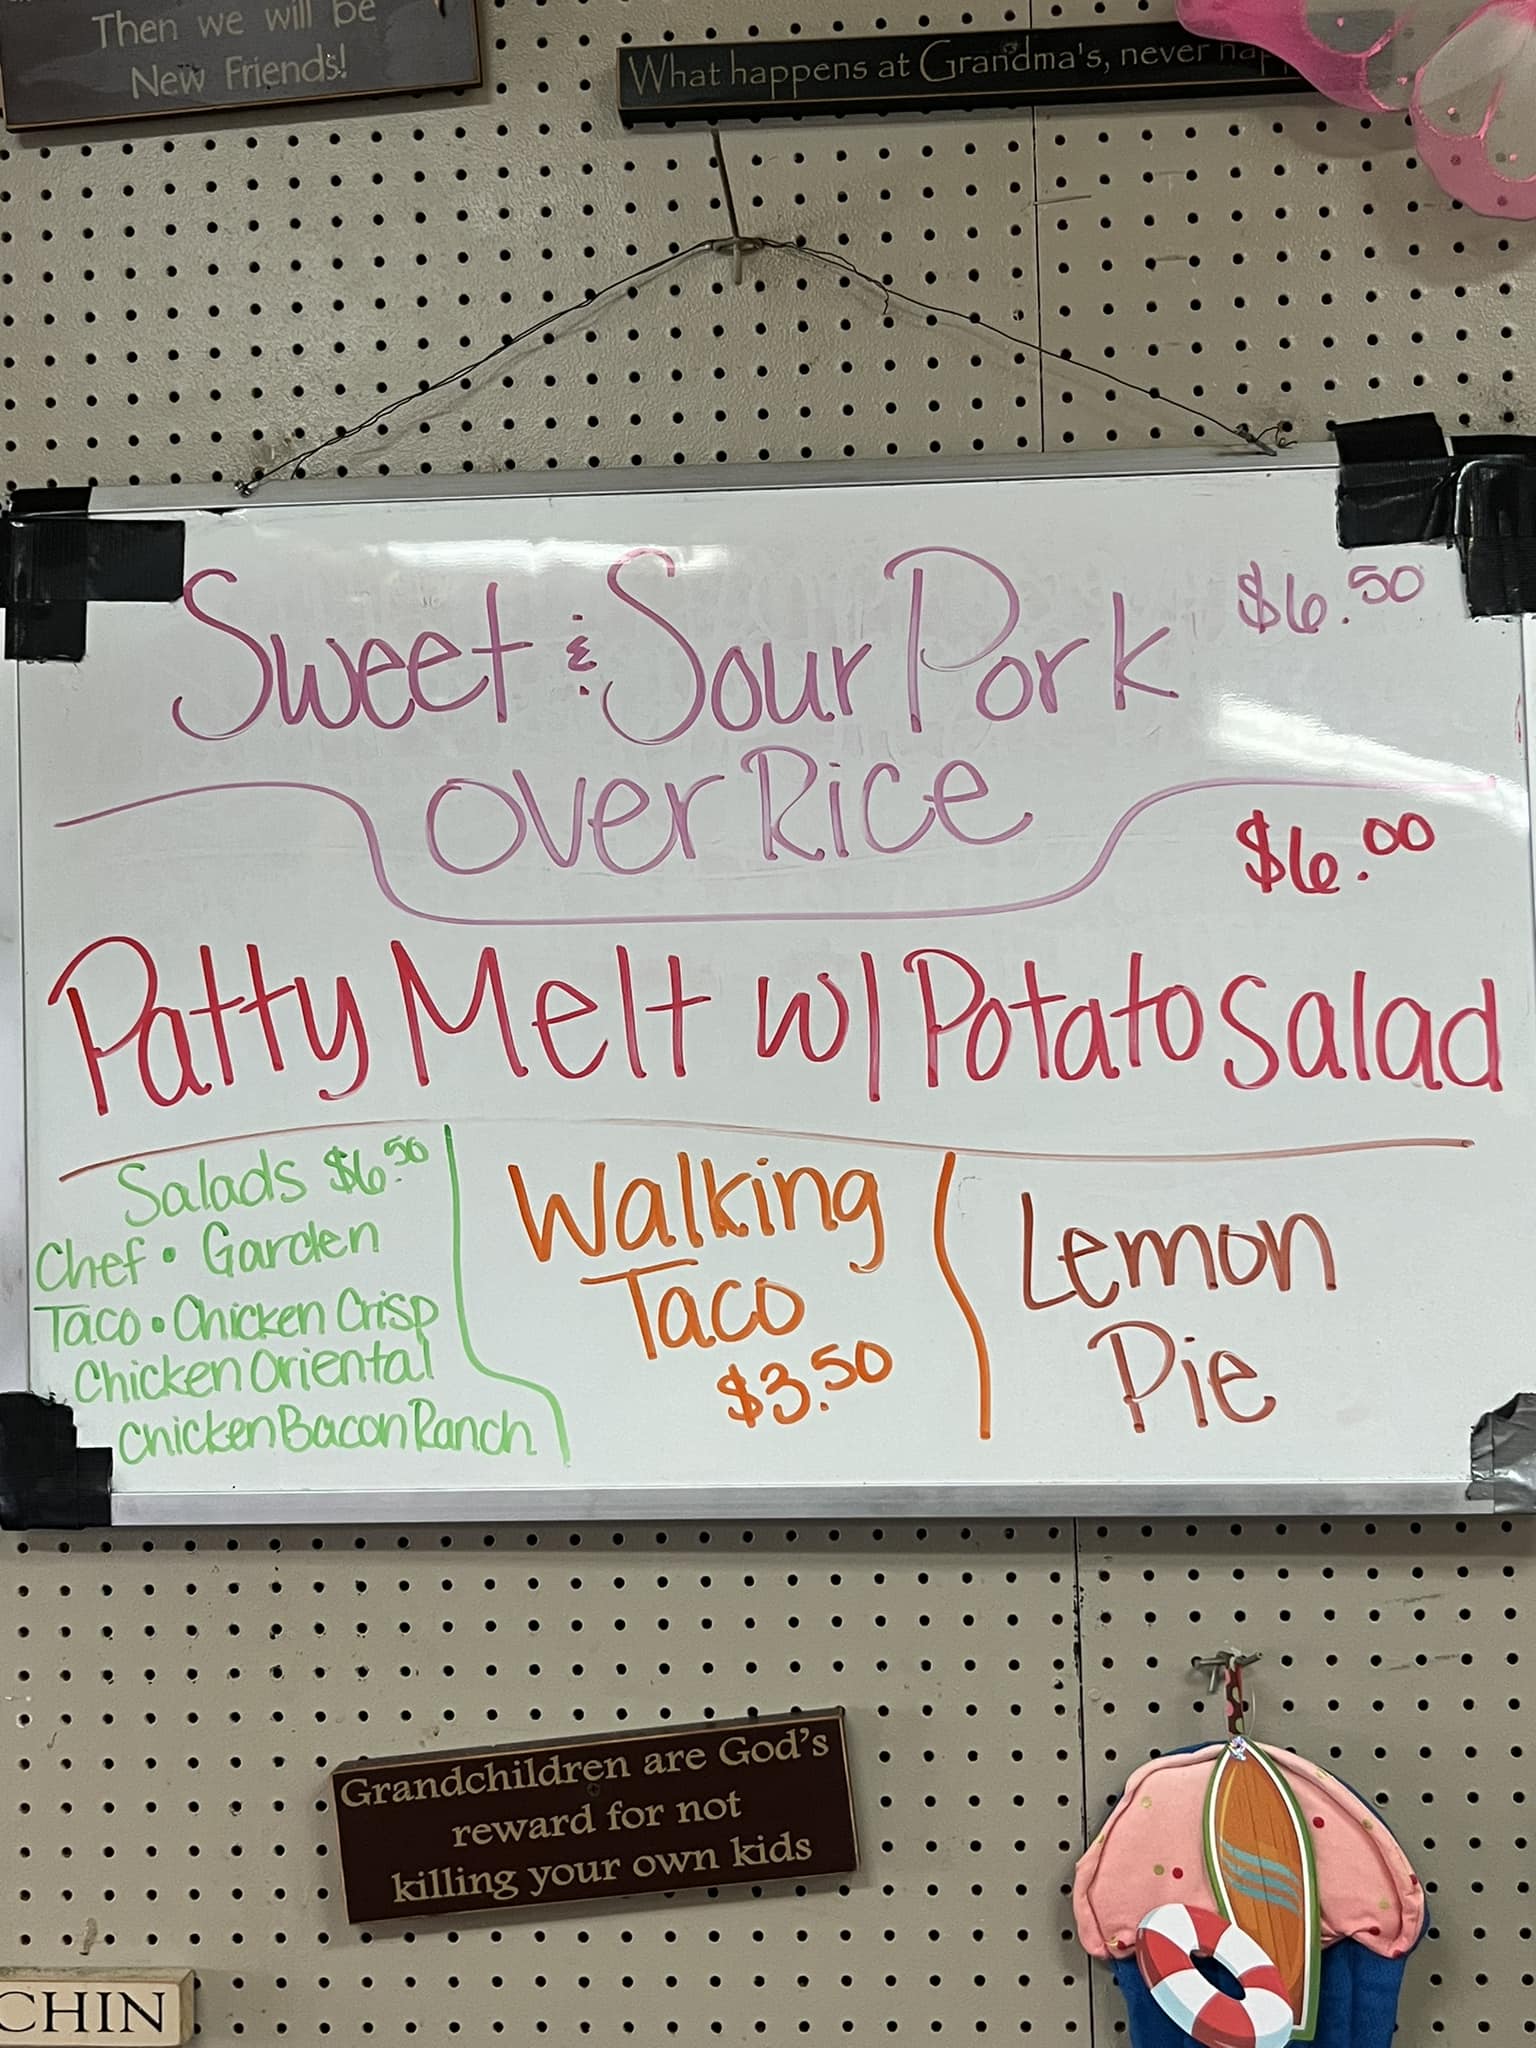 Then we will be
New Friends!
What happens at Grandma's, never
Sweet & Sour Pork $6.50
over Rice
$6.00
Patty Melt w/ Potato Salad
Salads $6.50
Chef • Garden
Taco • Chicken Crisp
Chicken Oriental
Chicken Bacon Ranch
Walking
Taco
$3.50
Lemon
Pie
Grandchildren are God's
reward for not
killing your own kids
CHIN